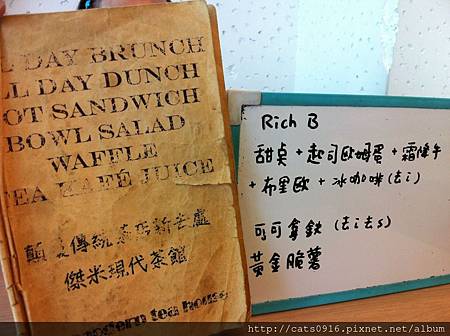 L DAY BRUNCH
LL DAY DUNCH
OT SANDWICH
BOWL SALAD
WAFFLE
TEA KAFÉ JUICE
顛 傳統
傑米現代茶館
modern tea house
Rich B
甜桌+起司歐姆蛋+霜降牛
+布里歐+冰咖啡(去i)
可可拿鉄(去i去s)
黃金脆薯
http://cats0916.pixnet.net/album